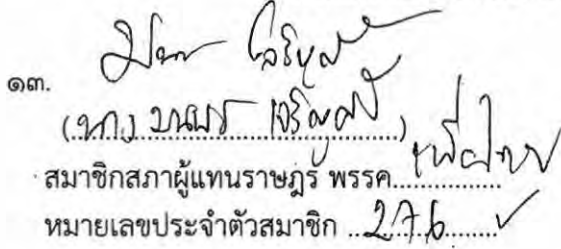 ๑๓. มนพร เจริญศรี
(นาง มนพร เจริญศรี)
สมาชิกสภาผู้แทนราษฎร พรรค เพื่อไทย
หมายเลขประจำตัวสมาชิก 276